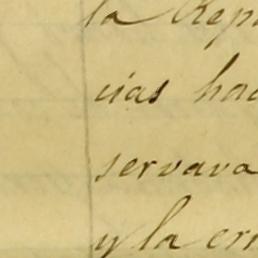 la Repu
cias hac
servava
y la em